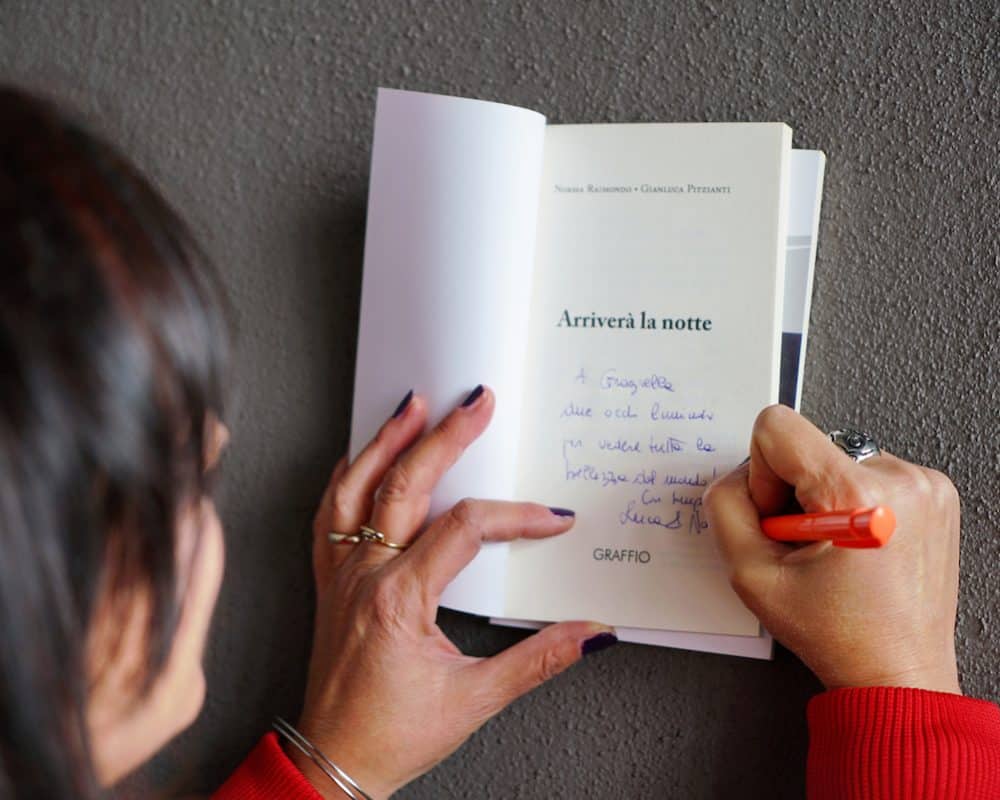 Norma Raimondo • Gianluca Pitzianti
Arriverà la notte
A Graziella
due occhi luminosi
per vedere tutta la
bellezza del mondo!
Con
Luca &
GRAFFIO